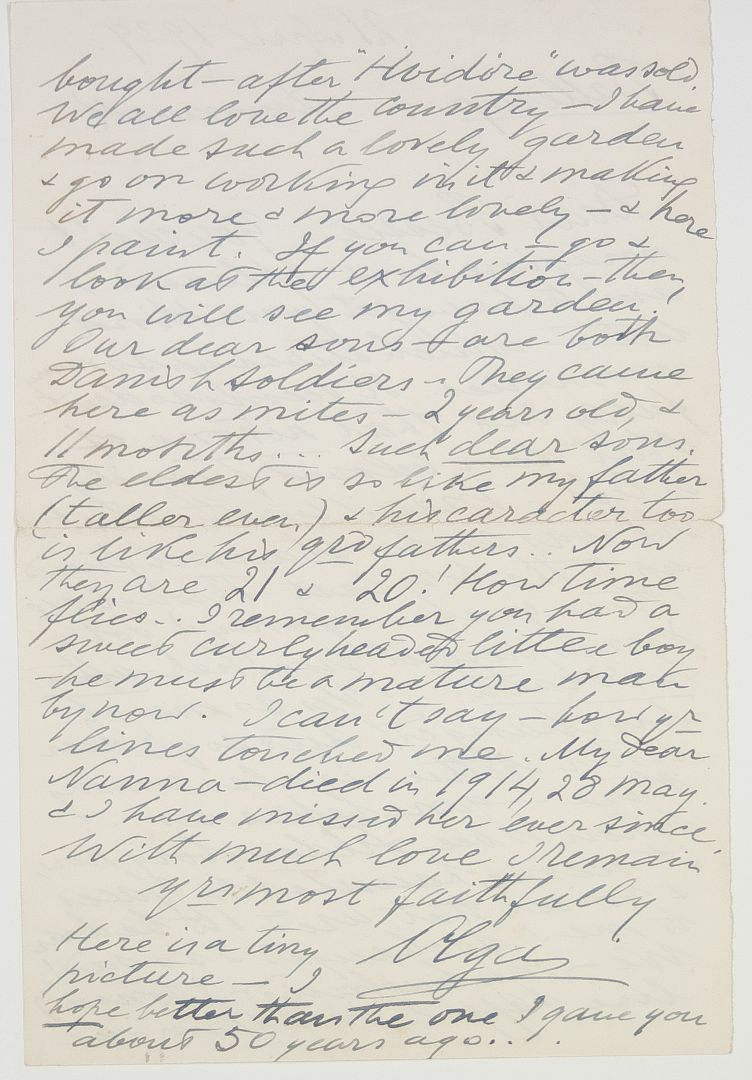 bought – after "Hvidöre" was sold
We all love the country – I have
made such a lovely garden
& go on working in it & making
it more & more lovely – & here
I paint. If you can – go &
look at the exhibition – then
you will see my garden!
Our dear sons – are both
Danish soldiers. They came
here as mites – 2 years old, &
11 months... Such dear sons.
The eldest is so like my father
(taller even) & his caracter too
is like his grd fathers.. Now
they are 21 & 20! How time
flies.. I remember you had a
sweet curlyheaded little boy
– he must be a mature man
by now. I can't say – how yr
lines touched me. My dear
Nanna – died in 1914, 28 May.
& I have missed her ever since
With much love I remain
yrs most faithfully
Olga
Here is a tiny
picture – I
hope better than the one I gave you
about 50 years ago...